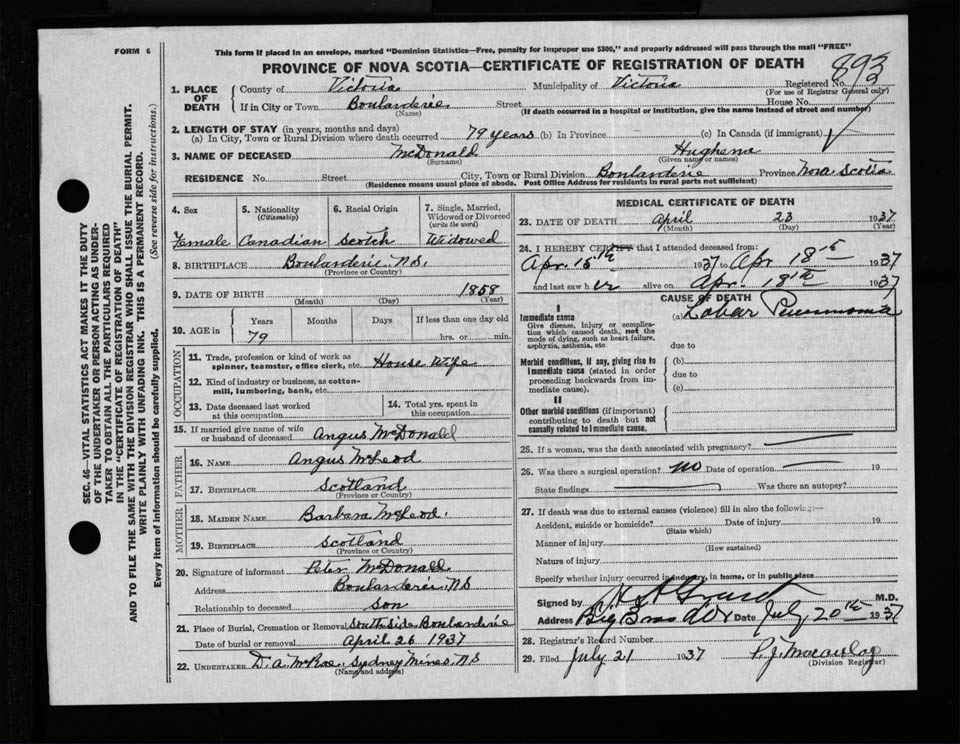 FORM 6
This form if placed in an envelope, marked "Dominion Statistics—Free, penalty for improper use $300," and properly addressed will pass through the mail "FREE"
PROVINCE OF NOVA SCOTIA—CERTIFICATE OF REGISTRATION OF DEATH
893
SEC. 46—VITAL STATISTICS ACT MAKES IT THE DUTY
OF THE UNDERTAKER OR PERSON ACTING AS UNDER-
TAKER TO OBTAIN ALL THE PARTICULARS REQUIRED
IN THE "CERTIFICATE OF REGISTRATION OF DEATH"
AND TO FILE THE SAME WITH THE DIVISION REGISTRAR WHO SHALL ISSUE THE BURIAL PERMIT.
WRITE PLAINLY WITH UNFADING INK. THIS IS A PERMANENT RECORD.
Every item of information should be carefully supplied. (See reverse side for instructions.)
1. PLACE OF DEATH County of Victoria Municipality of Victoria Registered No.
(For use of Registrar General only)
If in City or Town Boularderie Street House No.
(Name) (If death occurred in a hospital or institution, give the name instead of street and number)
2. LENGTH OF STAY (in years, months and days)
(a) In City, Town or Rural Division where death occurred 79 years (b) In Province (c) In Canada (if immigrant)
3. NAME OF DECEASED McDonald Hughena
(Surname) (Given name or names)
RESIDENCE No. Street City, Town or Rural Division Boularderie Province Nova Scotia
(Residence means usual place of abode. Post Office Address for residents in rural parts not sufficient)
4. Sex 5. Nationality (Citizenship) 6. Racial Origin 7. Single, Married, Widowed or Divorced (write the word)
Female Canadian Scotch Widowed
8. BIRTHPLACE Boularderie N.S.
(Province or Country)
9. DATE OF BIRTH 1858
(Month) (Day) (Year)
10. AGE in Years Months Days If less than one day old
79 hrs. or min.
OCCUPATION
11. Trade, profession or kind of work as
spinner, teamster, office clerk, etc. House Wife
12. Kind of industry or business, as cotton-
mill, lumbering, bank, etc.
13. Date deceased last worked at this occupation 14. Total yrs. spent in this occupation
15. If married give name of wife
or husband of deceased Angus McDonald
FATHER
16. NAME Angus McLeod
17. BIRTHPLACE Scotland
(Province or Country)
MOTHER
18. MAIDEN NAME Barbara McLeod.
19. BIRTHPLACE Scotland
(Province or Country)
20. Signature of informant Peter McDonald
Address Boularderie NS
Relationship to deceased son
21. Place of Burial, Cremation or Removal South Side Boularderie
Date of burial or removal April 26 1937
22. UNDERTAKER D. A. McRae, Sydney Mines, NS
(Name and address)
MEDICAL CERTIFICATE OF DEATH
23. DATE OF DEATH April 23 1937
(Month) (Day) (Year)
24. I HEREBY CERTIFY that I attended deceased from:
Apr. 15th 1937 to Apr 18th 1937
and last saw her alive on Apr. 18th 1937
CAUSE OF DEATH
I
Immediate cause (a) Lobar Pneumonia
Give disease, injury or complica-
tion which caused death, not the
mode of dying, such as heart failure,
asphyxia, asthenia, etc. due to
Morbid conditions, if any, giving rise to (b)
immediate cause (stated in order due to
proceeding backwards from im-
mediate cause). (c)
II
Other morbid conditions (if important)
contributing to death but not
causally related to immediate cause.
25. If a woman, was the death associated with pregnancy?
26. Was there a surgical operation? no Date of operation 19
State findings Was there an autopsy?
27. If death was due to external causes (violence) fill in also the following:—
Accident, suicide or homicide? Date of injury 19
(State which)
Manner of injury
(How sustained)
Nature of injury
Specify whether injury occurred in industry, in home, or in public place
Signed by Grant M.D.
Address Big Bras d'Or Date July 20th 1937
28. Registrar's Record Number
29. Filed July 21 1937 P. J. Macaulay
(Division Registrar)